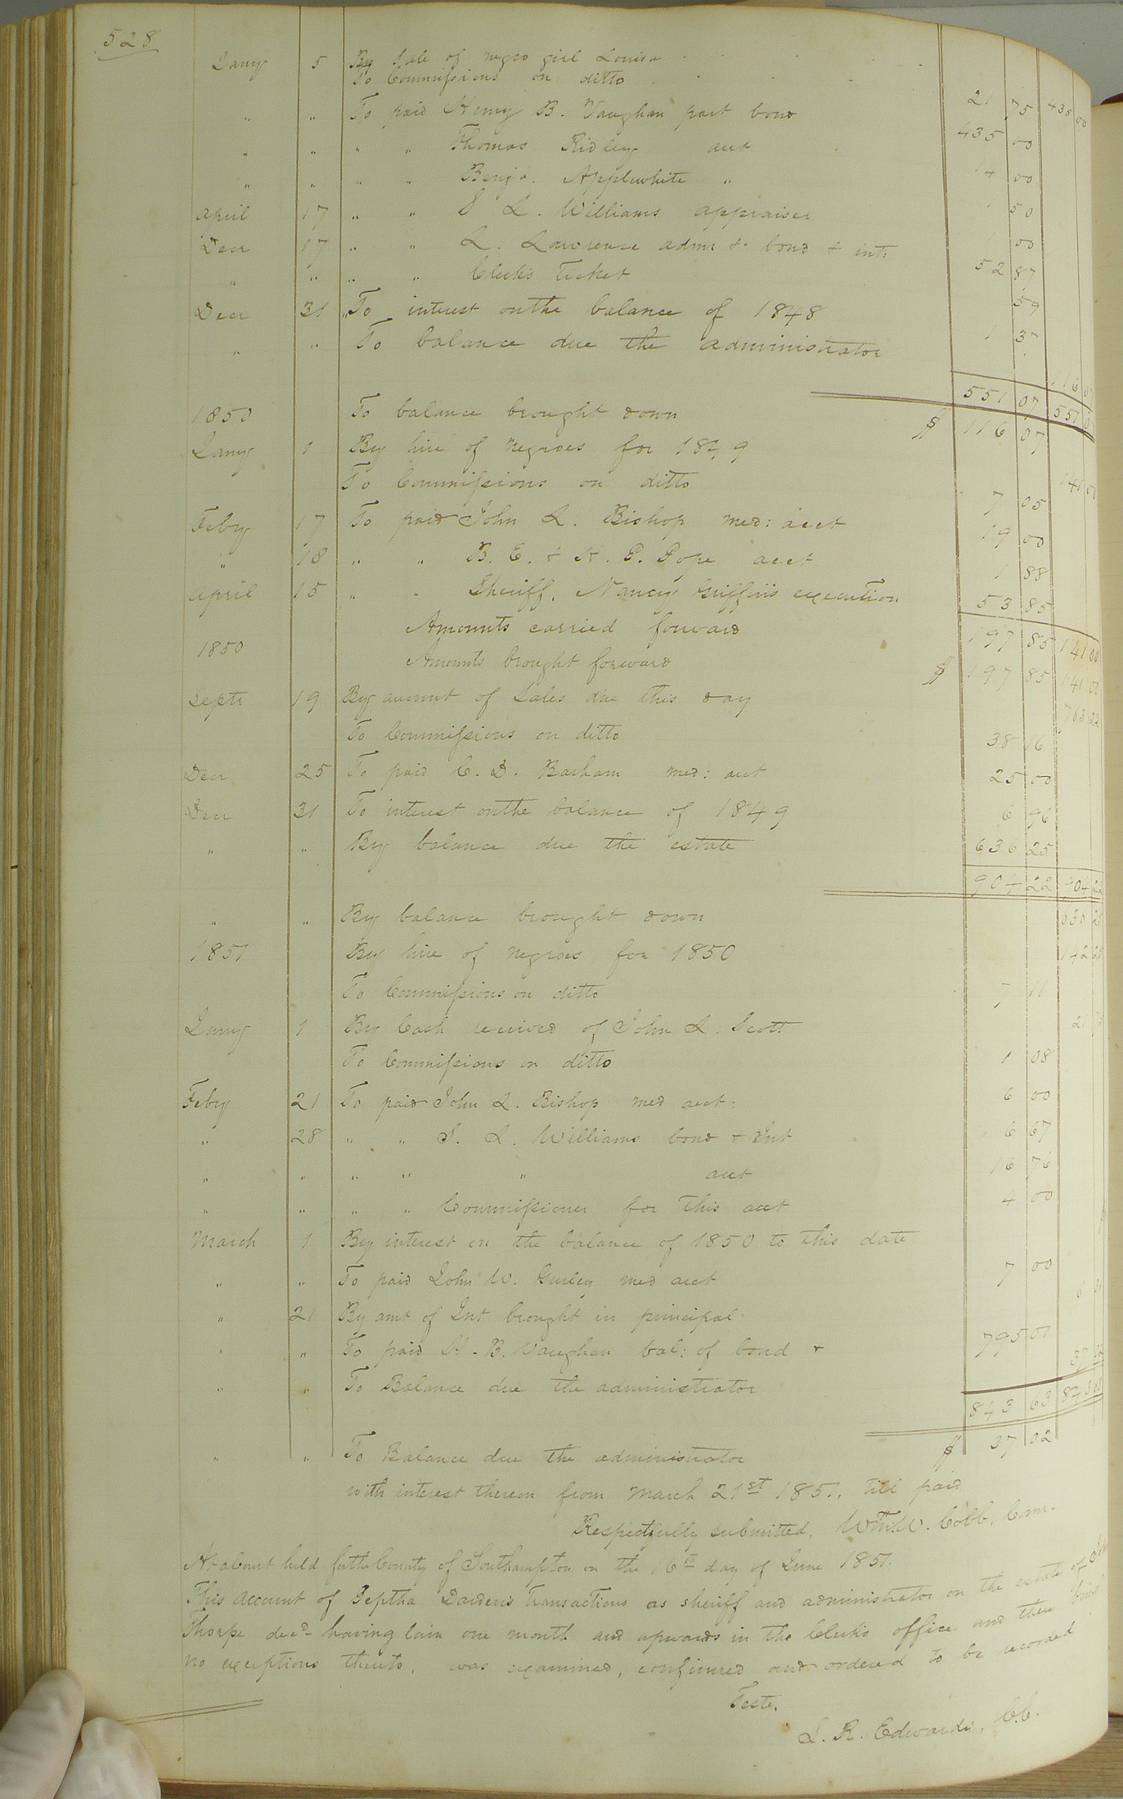 528
Jany 5 By Sale of negro girl Louisa 435 00
To Commissions on ditto 21 75
" " To paid Henry B. Vaughan part bond 435 00
" " " " Thomas Ridley acct 14 00
" " " " Benja. Applewhite " 50
April 17 " " J L. Williams appraiser 00
Decr 17 " " L. Lawrence admr &c bond & int: 52 87
" " " " Clerks Ticket 59
Decr 31 To interest on the balance of 1848 1 37
" " To balance due the administrator 116 07
551 07 551 07
1850 To balance brought down $ 116 07
Jany 1 By hire of negroes for 1849 141 00
To Commissions on ditto 7 05
Feby 17 To paid John L. Bishop med: acct 19 00
" 18 " " B. E. & H. P. Pope acct 1 88
April 15 " " Sheriff, Nancy Griffin's execution 53 85
Amounts carried forward 197 85 141 00
1850 Amounts brought forward $ 197 85 141 00
Septr 19 By amount of Sales due this day 763 22
To Commissions on ditto 38 16
Decr 25 To paid C. D. Barham med: acct 25 00
Decr 31 To interest on the balance of 1849 6 96
" " By balance due the estate 636 25
904 22 904 22
" " By balance brought down
1851 By hire of negroes for 1850 142
To Commissions on ditto 7 11
Jany 1 By Cash received of John L. Scott
To Commissions on ditto 1 08
Feby 21 To paid John L. Bishop med acct: 6 00
" 28 " " J. L. Williams bond & Int 6 67
" " " " " acct 16 76
" " " " Commissioner for this acct 4 00
March 1 By interest on the balance of 1850 to this date
" " To paid John W. Gurley med acct 7 00
" 21 By amt of Int brought in principal
" " To paid H. B. Vaughan bal: of bond & 795 01
" " To Balance due the administrator
843 63 843 63
" " To Balance due the administrator $ 37 02
with interest thereon from March 21st 1851. till paid
Respectfully submitted, Wm W. Cobb, Com.
At a Court held for the County of Southampton on the 16th day of June 1851.
This account of Jeptha Darden's transactions as sheriff and administrator on the estate of
Thorpe decd. having lain one month and upwards in the Clerks office and there being
no exceptions thereto, was examined, confirmed and ordered to be recorded
Teste,
L. R. Edwards, C.C.